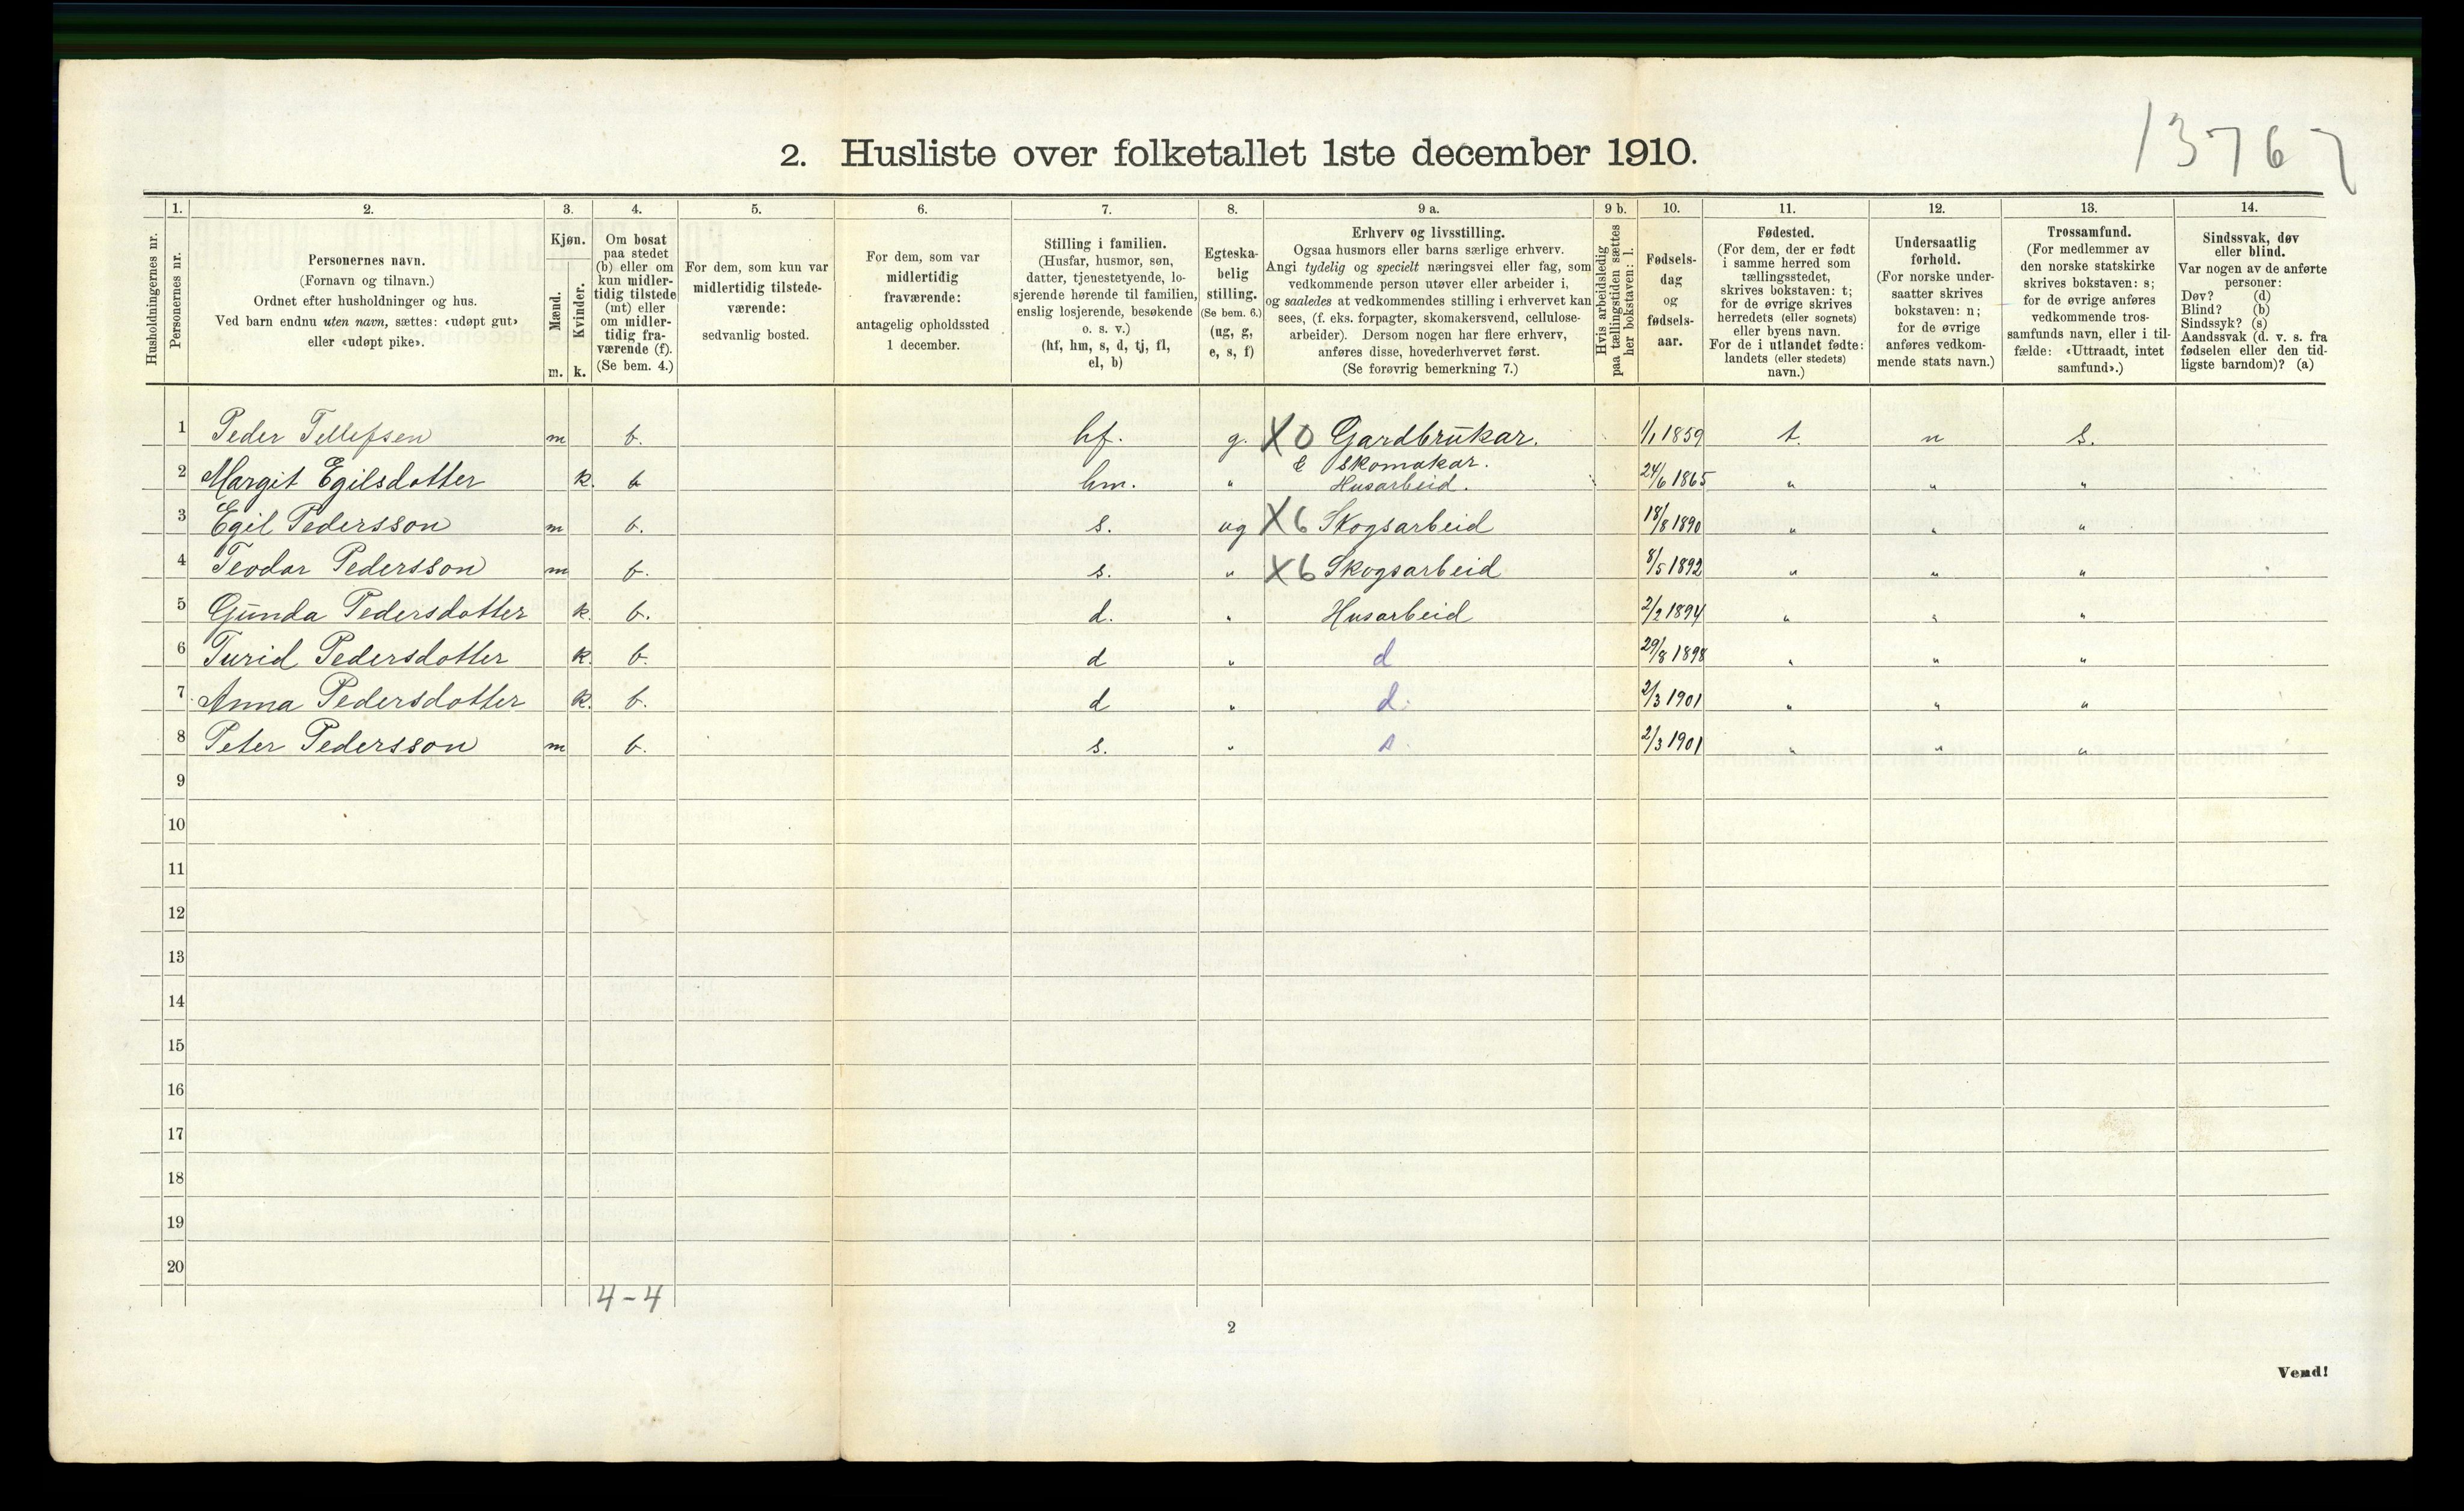 13767
2. Husliste over folketallet 1ste december 1910.
Husholdningernes nr.
1.
Personernes nr.
2.
Personernes navn.
(Fornavn og tilnavn.)
Ordnet efter husholdninger og hus.
Ved barn endnu uten navn, sættes: «udøpt gut»
eller «udøpt pike».
3.
Kjøn.
Mænd.
Kvinder.
m. k.
4.
Om bosat
paa stedet
(b) eller om
kun midler-
tidig tilstede
(mt) eller
om midler-
tidig fra-
værende (f).
(Se bem. 4.)
5.
For dem, som kun var
midlertidig tilstede-
værende:
sedvanlig bosted.
6.
For dem, som var
midlertidig
fraværende:
antagelig opholdssted
1 december.
7.
Stilling i familien.
(Husfar, husmor, søn,
datter, tjenestetyende, lo-
sjerende hørende til familien,
enslig losjerende, besøkende
o. s. v.)
(hf, hm, s, d, tj, fl,
el, b)
8.
Egteska-
belig
stilling.
(Se bem. 6.)
(ug, g,
e, s, f)
9 a.
Erhverv og livsstilling.
Ogsaa husmors eller barns særlige erhverv.
Angi tydelig og specielt næringsvei eller fag, som
vedkommende person utøver eller arbeider i,
og saaledes at vedkommendes stilling i erhvervet kan
sees, (f. eks. forpagter, skomakersvend, cellulose-
arbeider). Dersom nogen har flere erhverv,
anføres disse, hovederhvervet først.
(Se forøvrig bemerkning 7.)
9 b.
Hvis arbeidsledig
paa tællingstiden sættes
her bokstaven: l.
10.
Fødsels-
dag
og
fødsels-
aar.
11.
Fødested.
(For dem, der er født
i samme herred som
tællingsstedet,
skrives bokstaven: t;
for de øvrige skrives
herredets (eller sognets)
eller byens navn.
For de i utlandet fødte:
landets (eller stedets)
navn.)
12.
Undersaatlig
forhold.
(For norske under-
saatter skrives
bokstaven: n;
for de øvrige
anføres vedkom-
mende stats navn.)
13.
Trossamfund.
(For medlemmer av
den norske statskirke
skrives bokstaven: s;
for de øvrige anføres
vedkommende tros-
samfunds navn, eller i til-
fælde: «Uttraadt, intet
samfund».)
14.
Sindssvak, døv
eller blind.
Var nogen av de anførte
personer:
Døv? (d)
Blind? (b)
Sindssyk? (s)
Aandssvak (d. v. s. fra
fødselen eller den tid-
ligste barndom)? (a)
1 Peder Tellefsen m b. hf. g. X0 Gardbrukar. 1/1 1859 t. n s.
& Skomakar.
2 Margit Egilsdotter k. b hm. " Husarbeid. 24/6 1865 " " "
3 Egil Pedersson m b. s. ug X6 Skogsarbeid 18/8 1890 " " "
4 Teodor Pedersson m b. s. " X6 Skogsarbeid 8/5 1892 " " "
5 Gunda Pedersdotter k. b. d. " Husarbeid 2/2 1894 " " "
6 Turid Pedersdotter k. b. d " d 29/8 1898 " " "
7 Anna Pedersdotter k. b. d " d. 2/3 1901 " " "
8 Peter Pedersson m b. s. " s. 2/3 1901 " " "
9
10
11
12
13
14
15
16
17
18
19
20
4-4
2
Vend!